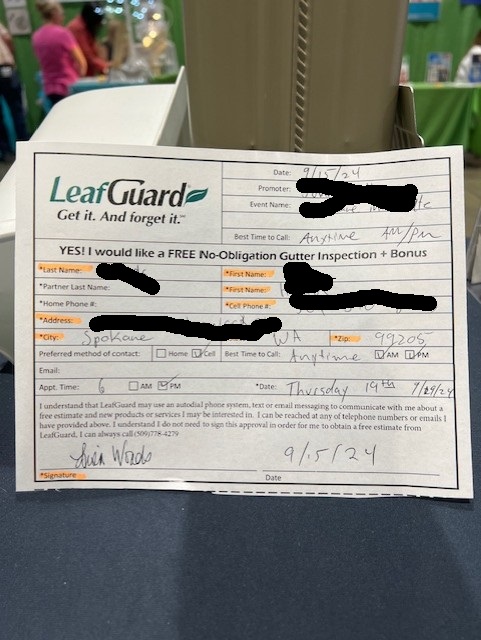 LeafGuard
Get it. And forget it.™
Date: 9/15/24
Promoter:
Event Name:
Best Time to Call: Anytime AM/PM
YES! I would like a FREE No-Obligation Gutter Inspection + Bonus
*Last Name: *First Name:
*Partner Last Name: *First Name:
*Home Phone #: *Cell Phone #:
*Address:
*City: Spokane WA *Zip: 99205
Preferred method of contact: Home Cell Best Time to Call: Anytime AM PM
Email:
Appt. Time: 6 AM PM *Date: Thursday 19th
I understand that LeafGuard may use an autodial phone system, text or email messaging to communicate with me about a
free estimate and new products or services I may be interested in. I can be reached at any of telephone numbers or emails I
have provided above. I understand I do not need to sign this approval in order for me to obtain a free estimate from
LeafGuard, I can always call (509)778-4279
Lisa Woods 9/15/24
*Signature Date